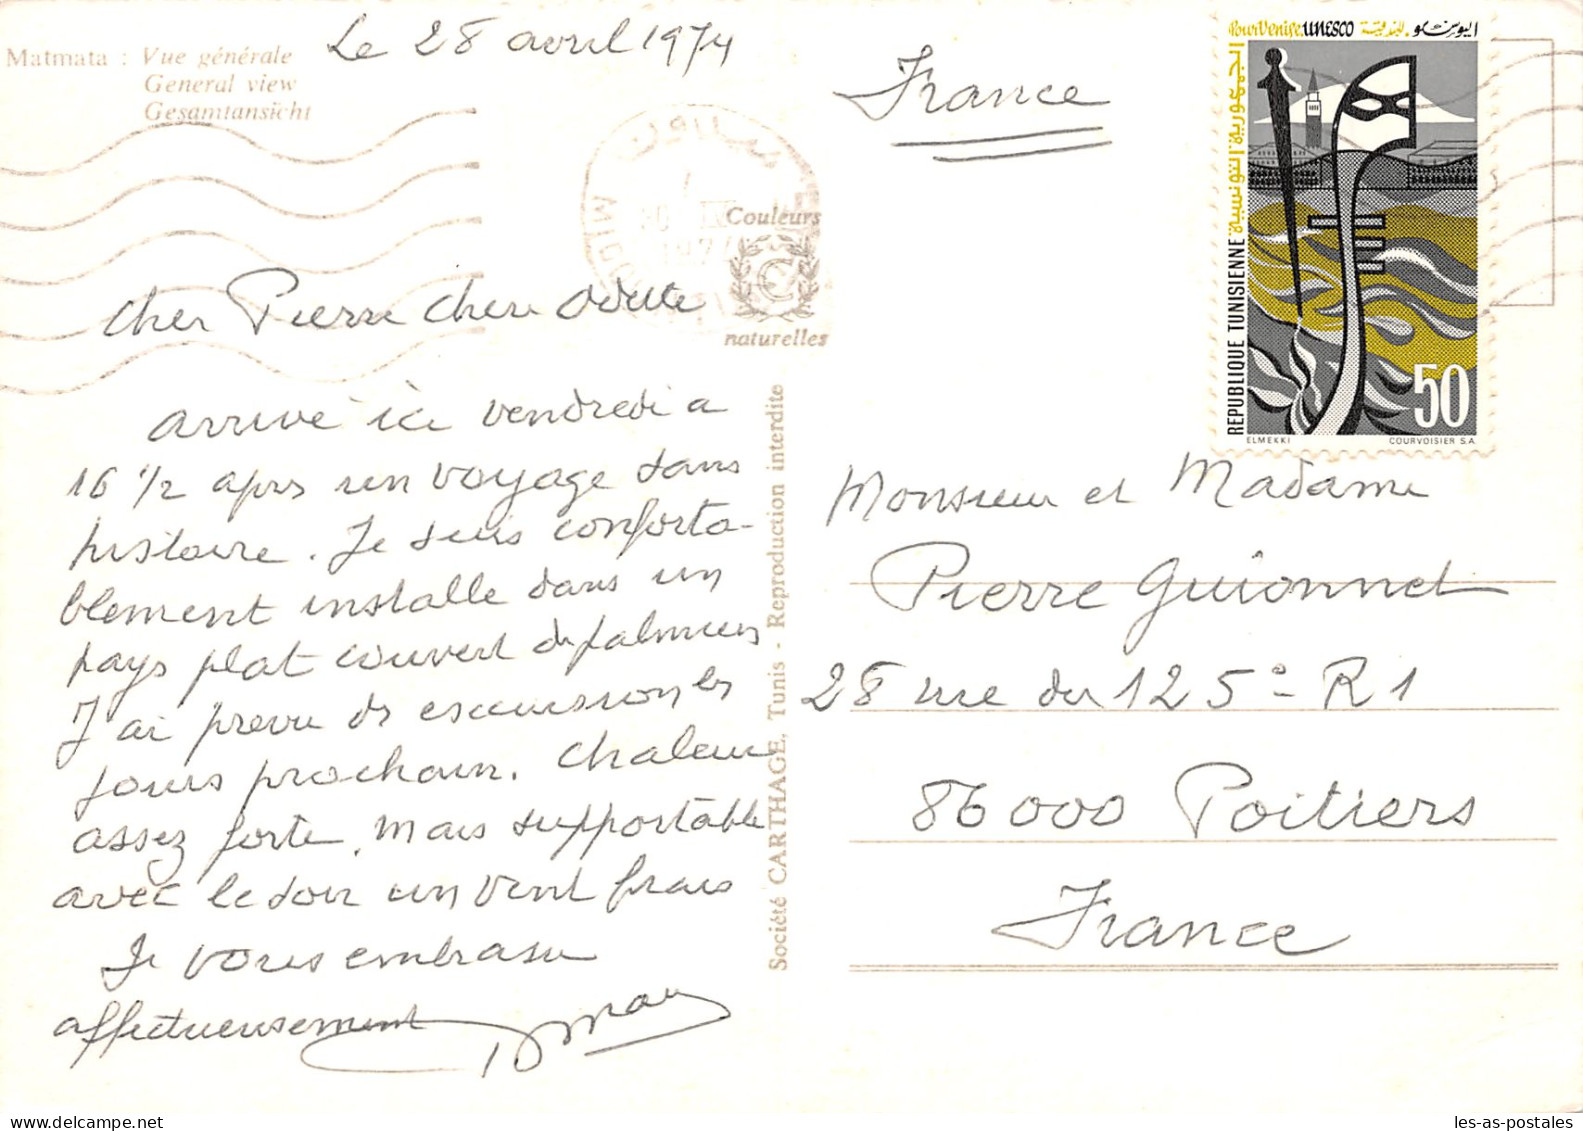 Matmata : Vue générale
General view
Gesamtansicht
Le 28 avril 1974
Cher Pierre Chere Odette
Arrivé ici vendredi a
16 ½ apres un voyage sans
histoire. Je suis conforta-
blement installe dans un
pays plat couvert de palmiers
J'ai prevu ds excursions les
jours prochain. Chaleur
assez forte, mais supportable
avec le soir un vent frais
Je vous embrasse
affectueusement
Couleurs
naturelles
Société CARTHAGE, Tunis - Reproduction interdite
France
Pour Venise. UNESCO
اليونسكو
الجمهورية التونسية
REPUBLIQUE TUNISIENNE
50
ELMEKKI
COURVOISIER S.A.
Monsieur et Madame
Pierre Guionnet
28 rue du 125° - R 1
86000 Poitiers
France
les-as-postales